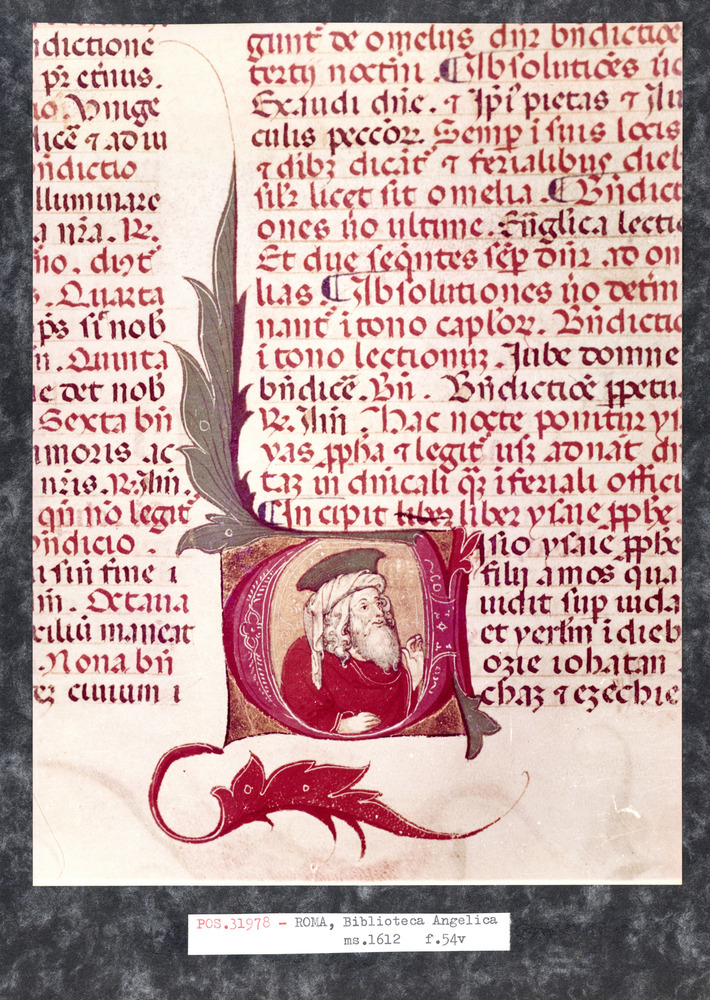 dictione
pr̄ et̄nus.
lice ⁊ ad iu
ndictio
lluminare
a nr̄a. R̄.
Quarta
p̄s si nob
Quinta
e det nob
Sexta bn̄
moris ac
nr̄is. R̄. Ihu
qn̄ no legit̄
ndicio.
sui fine i
Octaua
maneat
Nona bn̄
ciuium i
gunt̄ de omelijs dn̄r bn̄dictiōe
tertij noct̄ni. Absolutiōes ūo
Exaudi dn̄e. ⁊ Ip̄i pietas ⁊ A
culis pecc̄oꝝ. Semp̄ i suis locis
⁊ dibꝫ dicāt̄ ⁊ ferialibus dieb
sil̄r licet sit omelia. Bn̄dict
ones ūo ultime. Euāglica lecti
Et due seq̄ntes sēp̄ dn̄r ad om
lias Absolutiones ūo det̄mi
nant̄ i tono cap̄loꝝ. Bn̄dictio
i tono lectionuꝫ. Iube domne
bn̄dicē. Bn̄. Bn̄dictiōe p̄petu
R̄. Hac nocte ponit̄ur
uas p̄pha ⁊ legit̄ usqꝫ ad nāt̄ dn̄
in dn̄icali qꝫ i feriali offici
Incipit liber liber ysaie p̄phe
Uisio ysaie p̄phe
filij amos qua
uidit sup iuda
et yerlm̄ i dieb
ozie iohatan
chaꝫ ⁊ ezechie
POS.31978 - ROMA, Biblioteca Angelica
ms.1612 f.54v